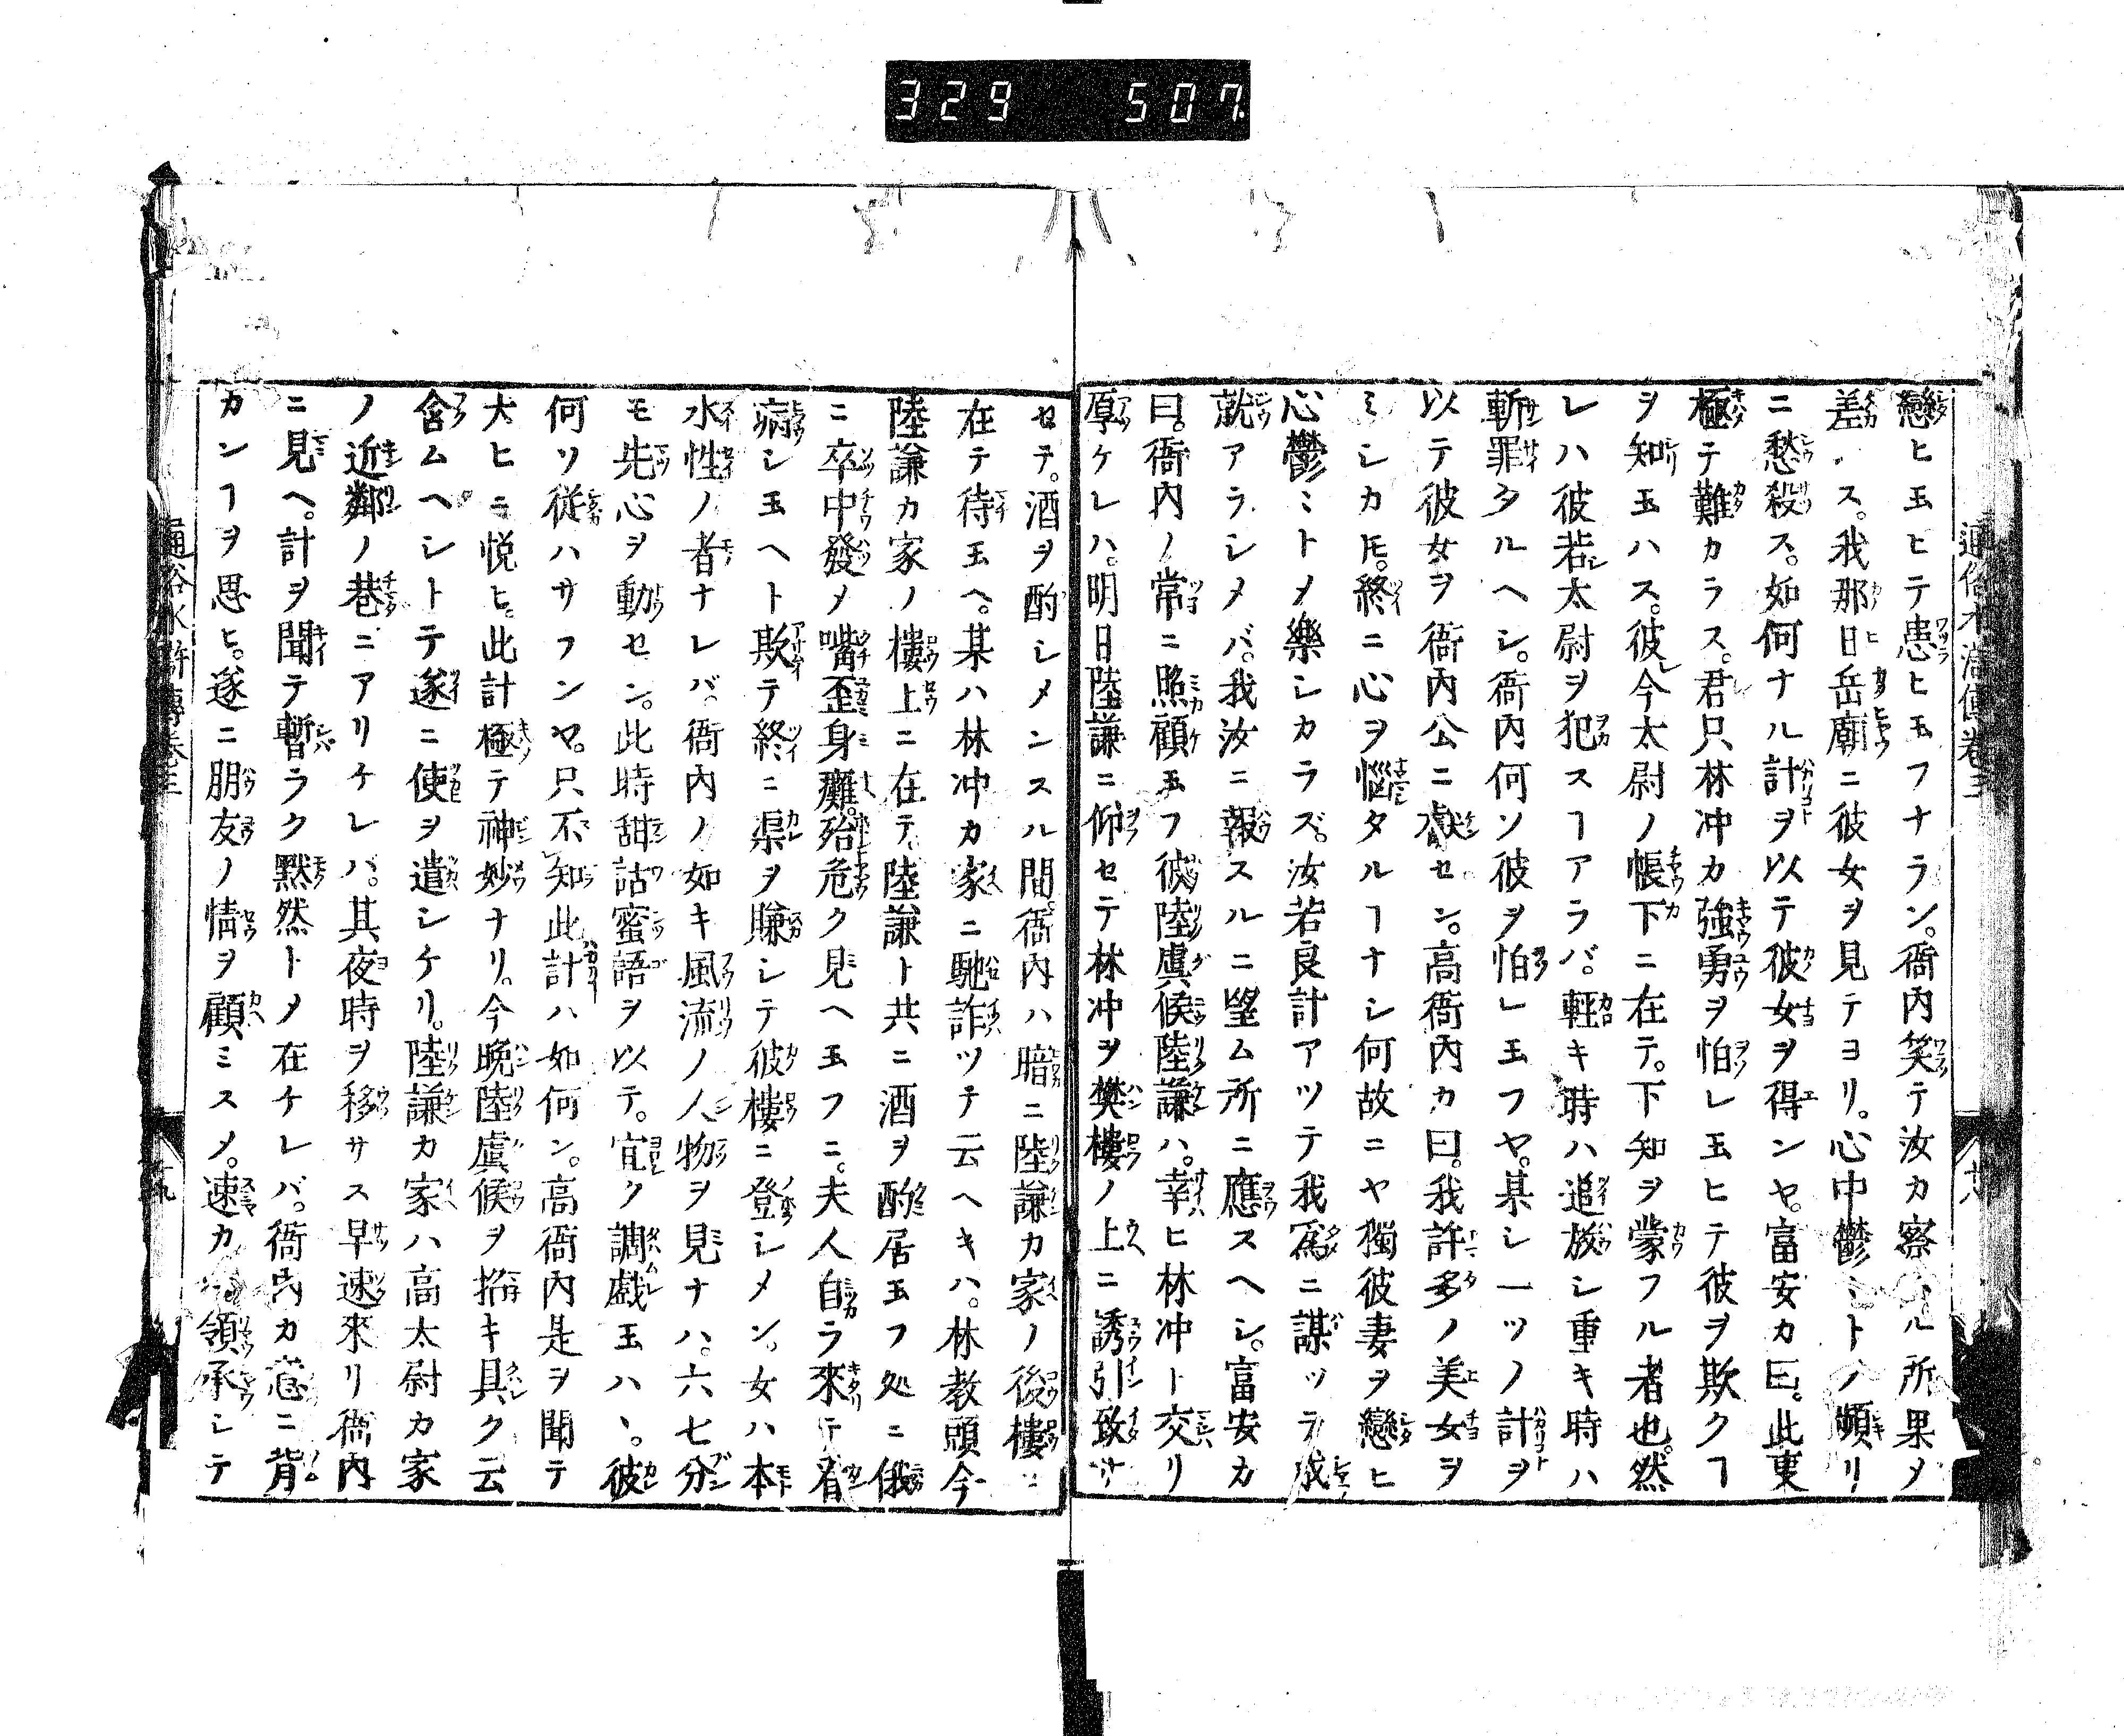 329 507
通俗水滸傳卷三
戀ヒ玉ヒテ患ヒ玉フナラン。衙内笑テ汝カ察スル所果メ
差ハス。我那日岳廟ニ彼女ヲ見テヨリ。心中鬱ミトノ頻リ
ニ愁殺ス。如何ナル計ヲ以テ彼女ヲ得ンヤ。富安カ曰。此東
極テ難カラス。君只林冲カ強勇ヲ怕レ玉ヒテ彼ヲ欺クヿ
ヲ知玉ハス。彼今太尉ノ帳下ニ在テ。下知ヲ蒙フル者也。然
レハ彼若太尉ヲ犯スヿアラバ。軽キ時ハ追放シ重キ時ハ
斬罪タルヘシ。衙内何ソ彼ヲ怕レ玉フヤ。某シ一ツノ計ヲ
以テ彼女ヲ衙内公ニ献セン。高衙内カ曰。我許多ノ美女ヲ
ミシカ𪜈。終ニ心ヲ惱タルヿナシ何故ニヤ獨彼妻ヲ戀ヒ
心鬱ミトメ樂シカラズ。汝若良計アツテ我爲ニ謀ツラ成
就アラシメバ。我汝ニ報スルニ望ム所ニ應スヘシ。富安カ
曰。衙内ノ常ニ照顧玉フ彼陸虞候陸謙ハ。幸ヒ林冲ト交リ
厚ケレハ。明日陸謙ニ仰セテ林冲ヲ樊樓ノ上ニ誘引致サ
セテ。酒ヲ酌シメンスル間。衙内ハ暗ニ陸謙カ家ノ後樓ニ
在テ待玉ヘ。某ハ林冲カ家ニ馳詐ツテ云ヘキハ。林教頭今
陸謙カ家ノ樓上ニ在テ。陸謙ト共ニ酒ヲ酌居玉フ処ニ俄
ニ卒中發メ嘴歪身癱。殆危ク見ヘ玉フニ。夫人自ラ來テ看
病シ玉ヘト欺テ終ニ渠ヲ賺シテ彼樓ニ登シメン。女ハ本
水性ノ者ナレバ。衙内ノ如キ風流ノ人物ヲ見ナハ。六七分
モ先心ヲ動セン。此時甜話蜜語ヲ以テ。宜ク調戲玉ハヽ。彼
何ソ從ハサフンヤ。只不知此計ハ如何ン。高衙内是ヲ聞テ
大ヒニ悦ヒ。此計極テ神妙ナリ。今晩陸虞候ヲ招キ具ク云
含ムヘシトテ遂ニ使ヲ遣シケリ。陸謙カ家ハ高太尉カ家
ノ近鄰ノ巷ニアリケレバ。其夜時ヲ移サス早速來リ衙内
ニ見ヘ。計ヲ聞テ暫ラク黙然トメ在ケレバ。衙内カ意ニ背
カンヿヲ思ヒ。遂ニ朋友ノ情ヲ顧ミスメ。速カニ領承シテ
通俗水滸傳卷三